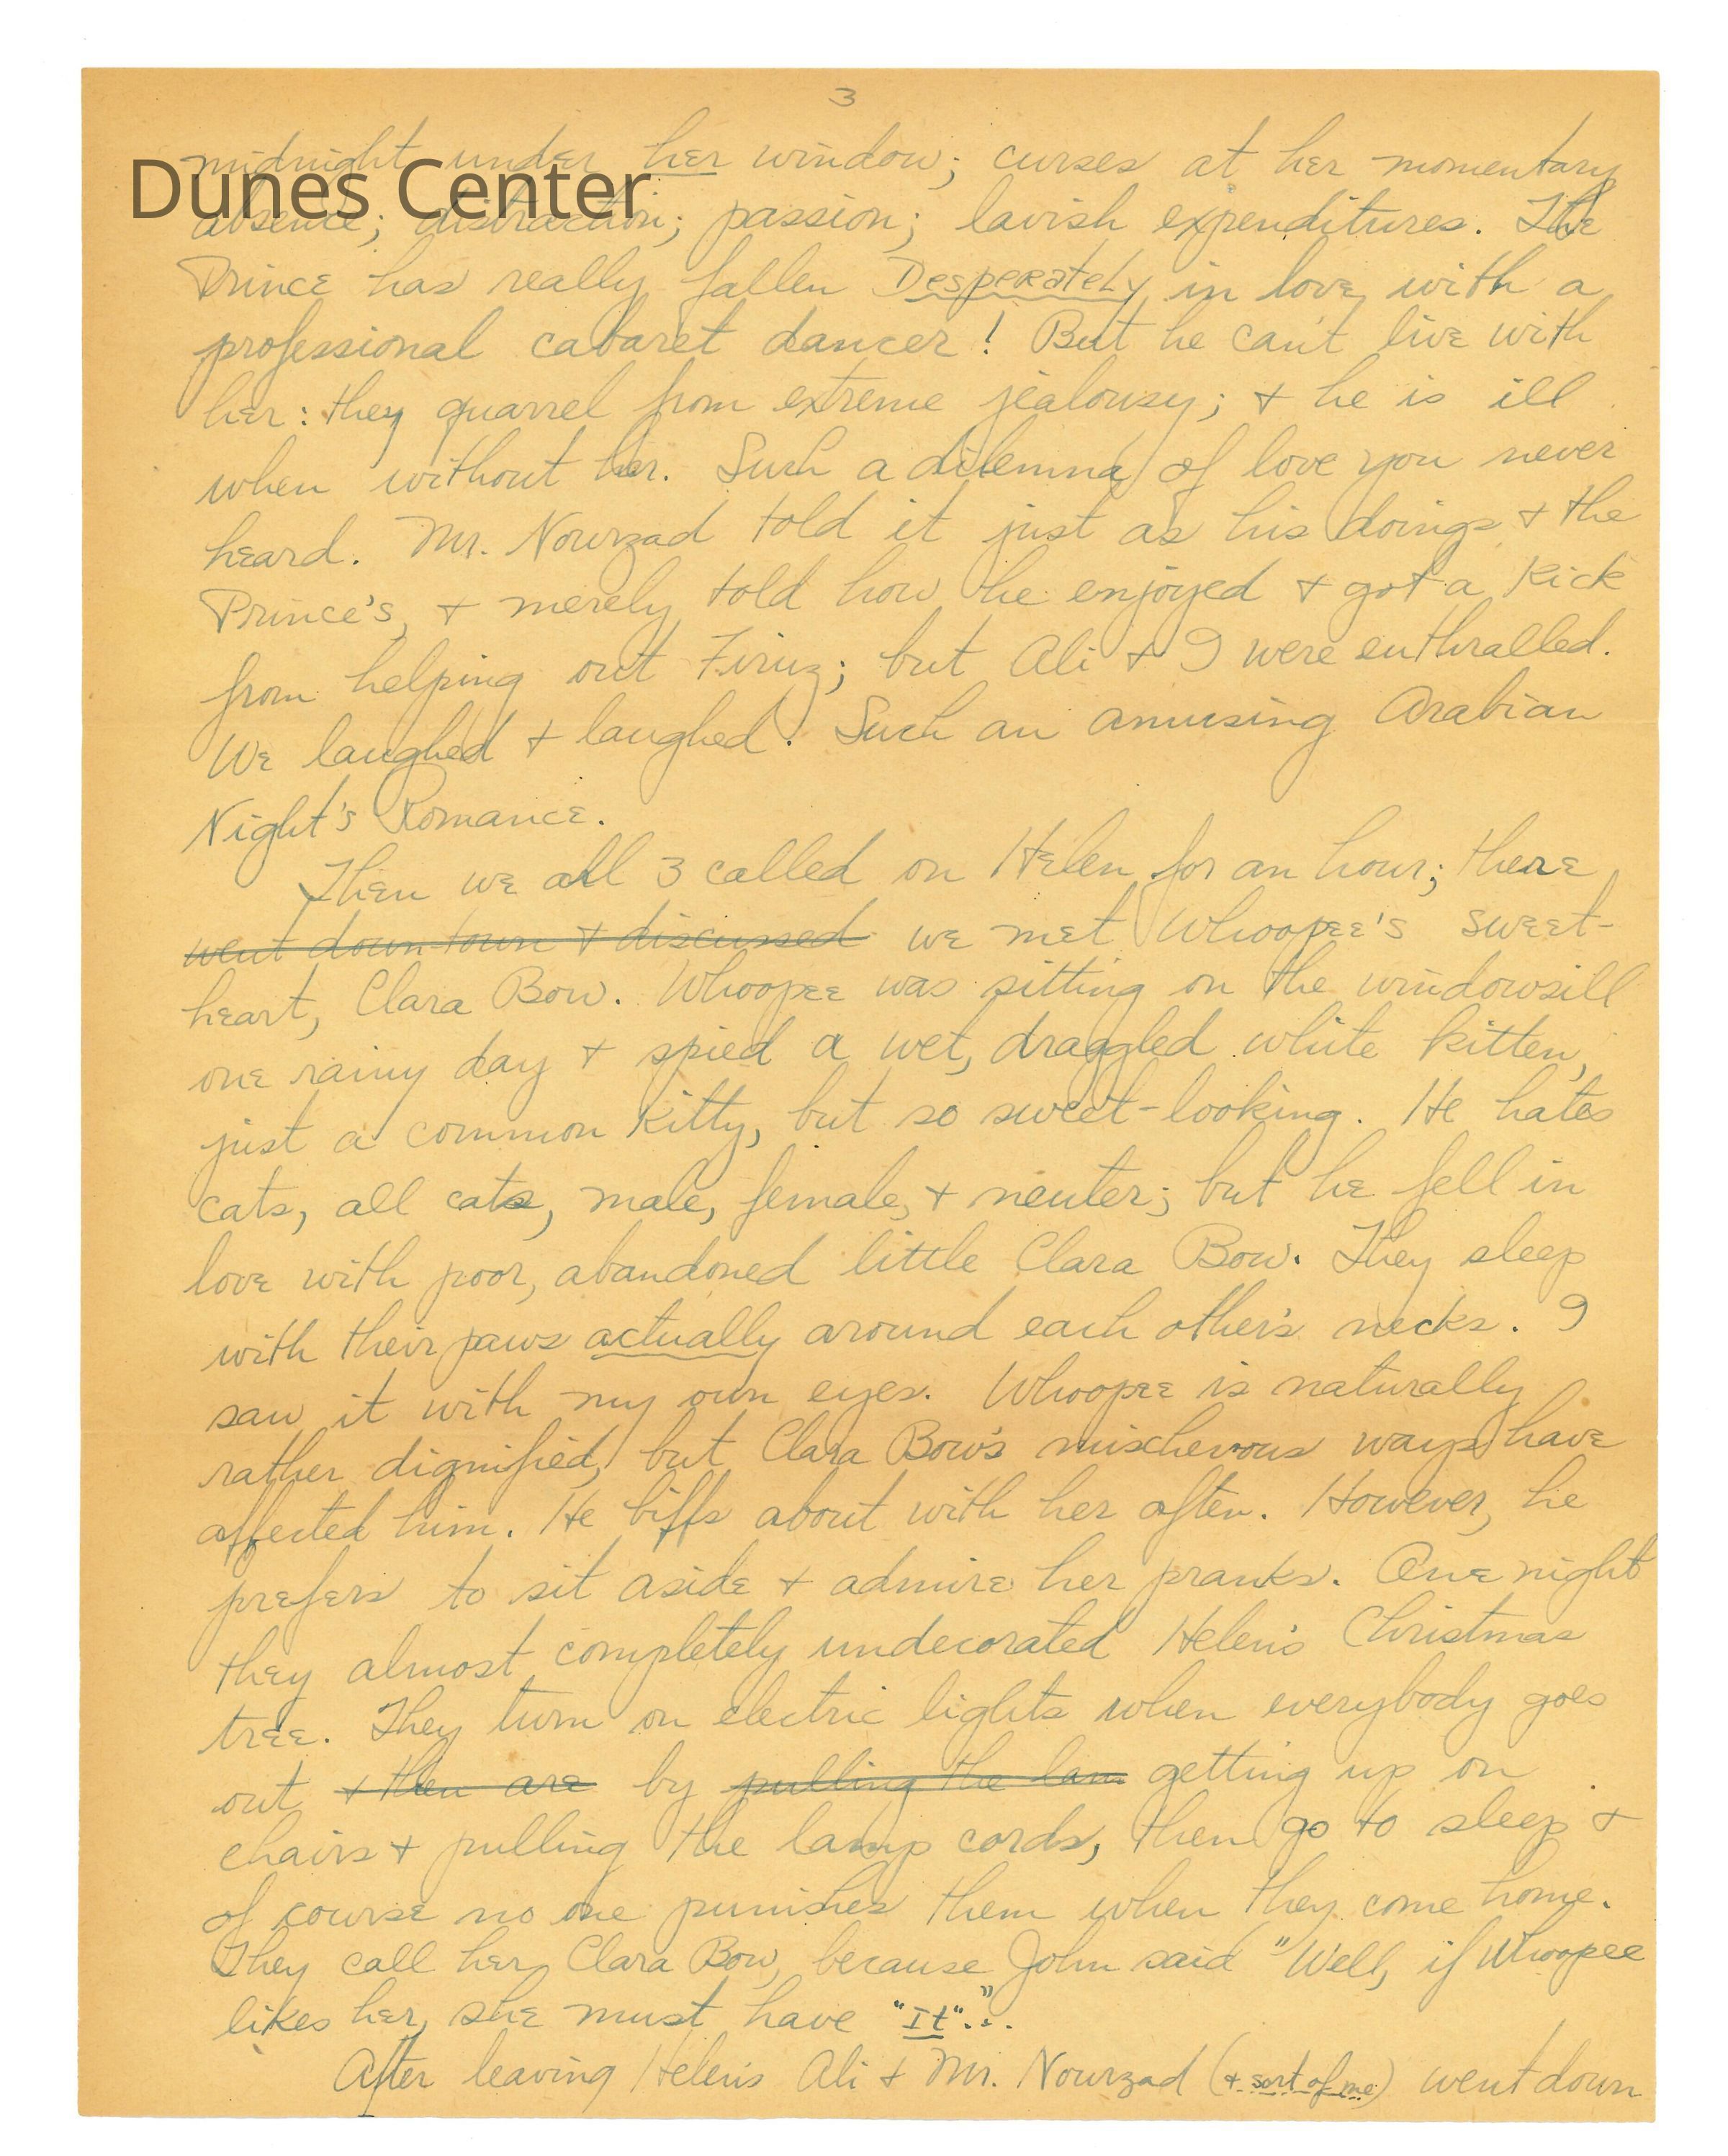 3
midnight under her window; curses at her momentary
Dunes Center
absence; distraction; passion; lavish expenditures. The
Prince has really fallen Desperately in love with a
professional cabaret dancer! But he can't live with
her: they quarrel from extreme jealousy; + he is ill
when without her. Such a dilemna of love you never
heard. Mr. Nowrzad told it just as his doings + the
Prince's, + merely told how he enjoyed + got a kick
from helping out Firuz; but Ali + I were enthralled.
We laughed + laughed! Such an amusing Arabian
Night's Romance.
Then we all 3 called on Helen for an hour; there
went down town + discussed we met Whoopee's sweet-
heart, Clara Bow. Whoopee was sitting on the windowsill
one rainy day + spied a wet, draggled white kitten,
just a common kitty, but so sweet-looking. He hates
cats, all cats, male, female, + neuter; but he fell in
love with poor, abandoned little Clara Bow. They sleep
with their paws actually around each other's necks. I
saw it with my own eyes. Whoopee is naturally
rather dignified, but Clara Bow's mischevous ways have
affected him. He biffs about with her often. However, he
prefers to sit aside + admire her pranks. One night
they almost completely undecorated Helen's Christmas
tree. They turn on electric lights when everybody goes
out + then are by pulling the lam getting up on
chairs + pulling the lamp cords, then go to sleep +
of course no one punishes them when they come home.
They call her Clara Bow, because John said "Well, if Whoopee
likes her, she must have "It"..."
After leaving Helen's Ali + Mr. Nowrzad (+ sort of me) went down